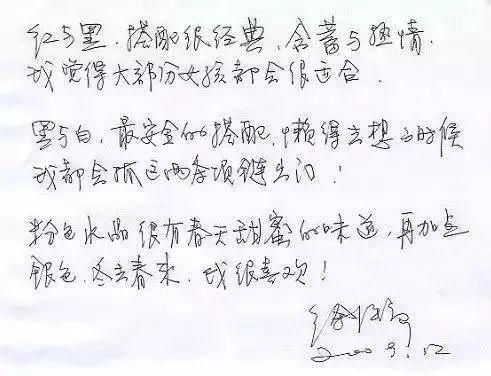 红与黑，搭配很经典，含蓄与热情，
我觉得大部份女孩都会很适合．
黑与白，最安全的搭配，懒得去想的时候
我都会抓这两条项链出门！
粉色水晶很有春天甜蜜的味道，再加点
银色，冬去春来，我很喜欢！